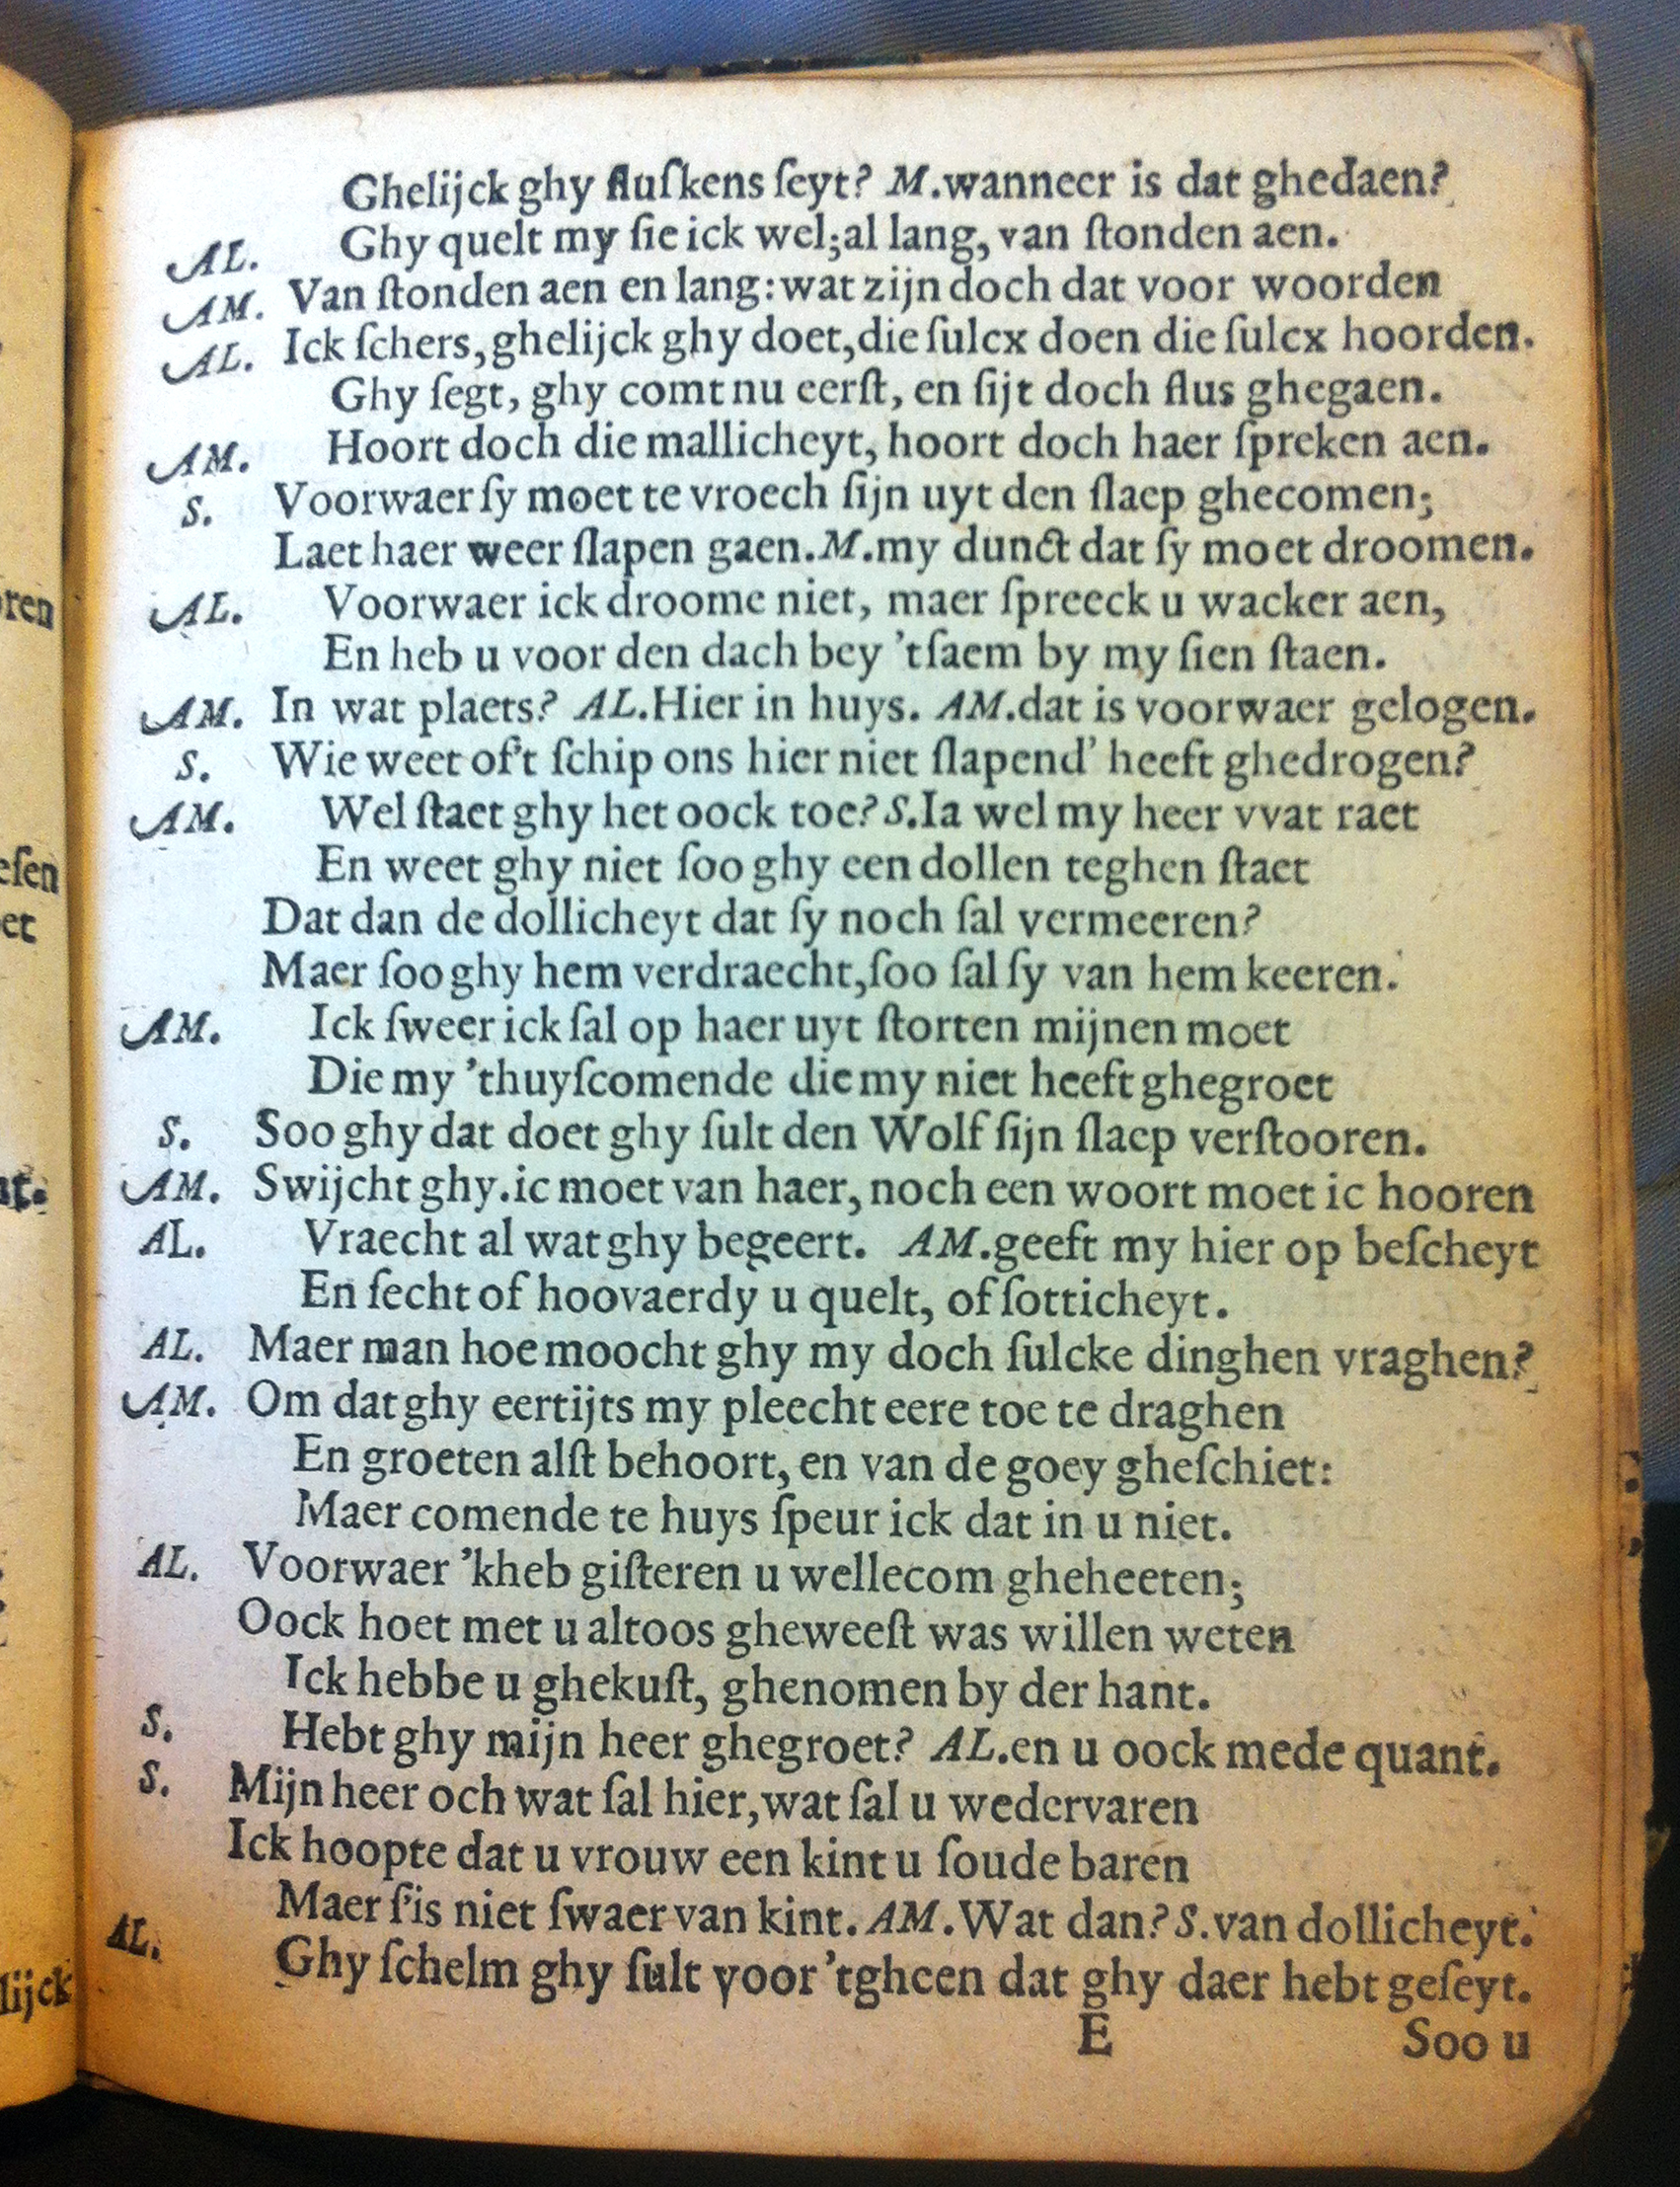 Ghelijck ghy fluſkens ſeyt? M.wanneer is dat ghedaen?
AL. Ghy quelt my ſie ick wel;al lang, van ſtonden aen.
AM. Van ſtonden aen en lang:wat zijn doch dat voor woorden
AL. Ick ſchers,ghelijck ghy doet,die ſulcx doen die ſulcx hoorden.
Ghy ſegt, ghy comt nu eerſt, en ſijt doch flus ghegaen.
AM. Hoort doch die mallicheyt, hoort doch haer ſpreken aen.
S. Voorwaer ſy moet te vroech ſijn uyt den ſlaep ghecomen;
Laet haer weer ſlapen gaen.M.my dunct dat ſy moet droomen.
AL. Voorwaer ick droome niet, maer ſpreeck u wacker aen,
En heb u voor den dach bey 'tſaem by my ſien ſtaen.
AM. In wat plaets? AL.Hier in huys. AM.dat is voorwaer gelogen.
S. Wie weet of't ſchip ons hier niet ſlapend' heeft ghedrogen?
AM. Wel ſtaet ghy het oock toe? S.Ia wel my heer vvat raet
En weet ghy niet ſoo ghy een dollen teghen ſtaet
Dat dan de dollicheyt dat ſy noch ſal vermeeren?
Maer ſoo ghy hem verdraecht,ſoo ſal ſy van hem keeren.
AM. Ick ſweer ick ſal op haer uyt ſtorten mijnen moet
Die my 'thuyſcomende die my niet heeft ghegroet
S. Soo ghy dat doet ghy ſult den Wolf ſijn ſlaep verſtooren.
AM. Swijcht ghy.ic moet van haer, noch een woort moet ic hooren
AL. Vraecht al wat ghy begeert. AM.geeft my hier op beſcheyt
En ſecht of hoovaerdy u quelt, of ſotticheyt.
AL. Maer man hoe moocht ghy my doch ſulcke dinghen vraghen?
AM. Om dat ghy eertijts my pleecht eere toe te draghen
En groeten alſt behoort, en van de goey gheſchiet:
Maer comende te huys ſpeur ick dat in u niet.
AL. Voorwaer 'kheb giſteren u wellecom gheheeten;
Oock hoet met u altoos gheweeſt was willen weten
Ick hebbe u ghekuſt, ghenomen by der hant.
S. Hebt ghy mijn heer ghegroet? AL.en u oock mede quant.
S. Mijn heer och wat ſal hier,wat ſal u wedervaren
Ick hoopte dat u vrouw een kint u ſoude baren
Maer ſ'is niet ſwaer van kint. AM.Wat dan? S.van dollicheyt.
AL. Ghy ſchelm ghy ſult voor 'tgheen dat ghy daer hebt geſeyt.
E Soo u